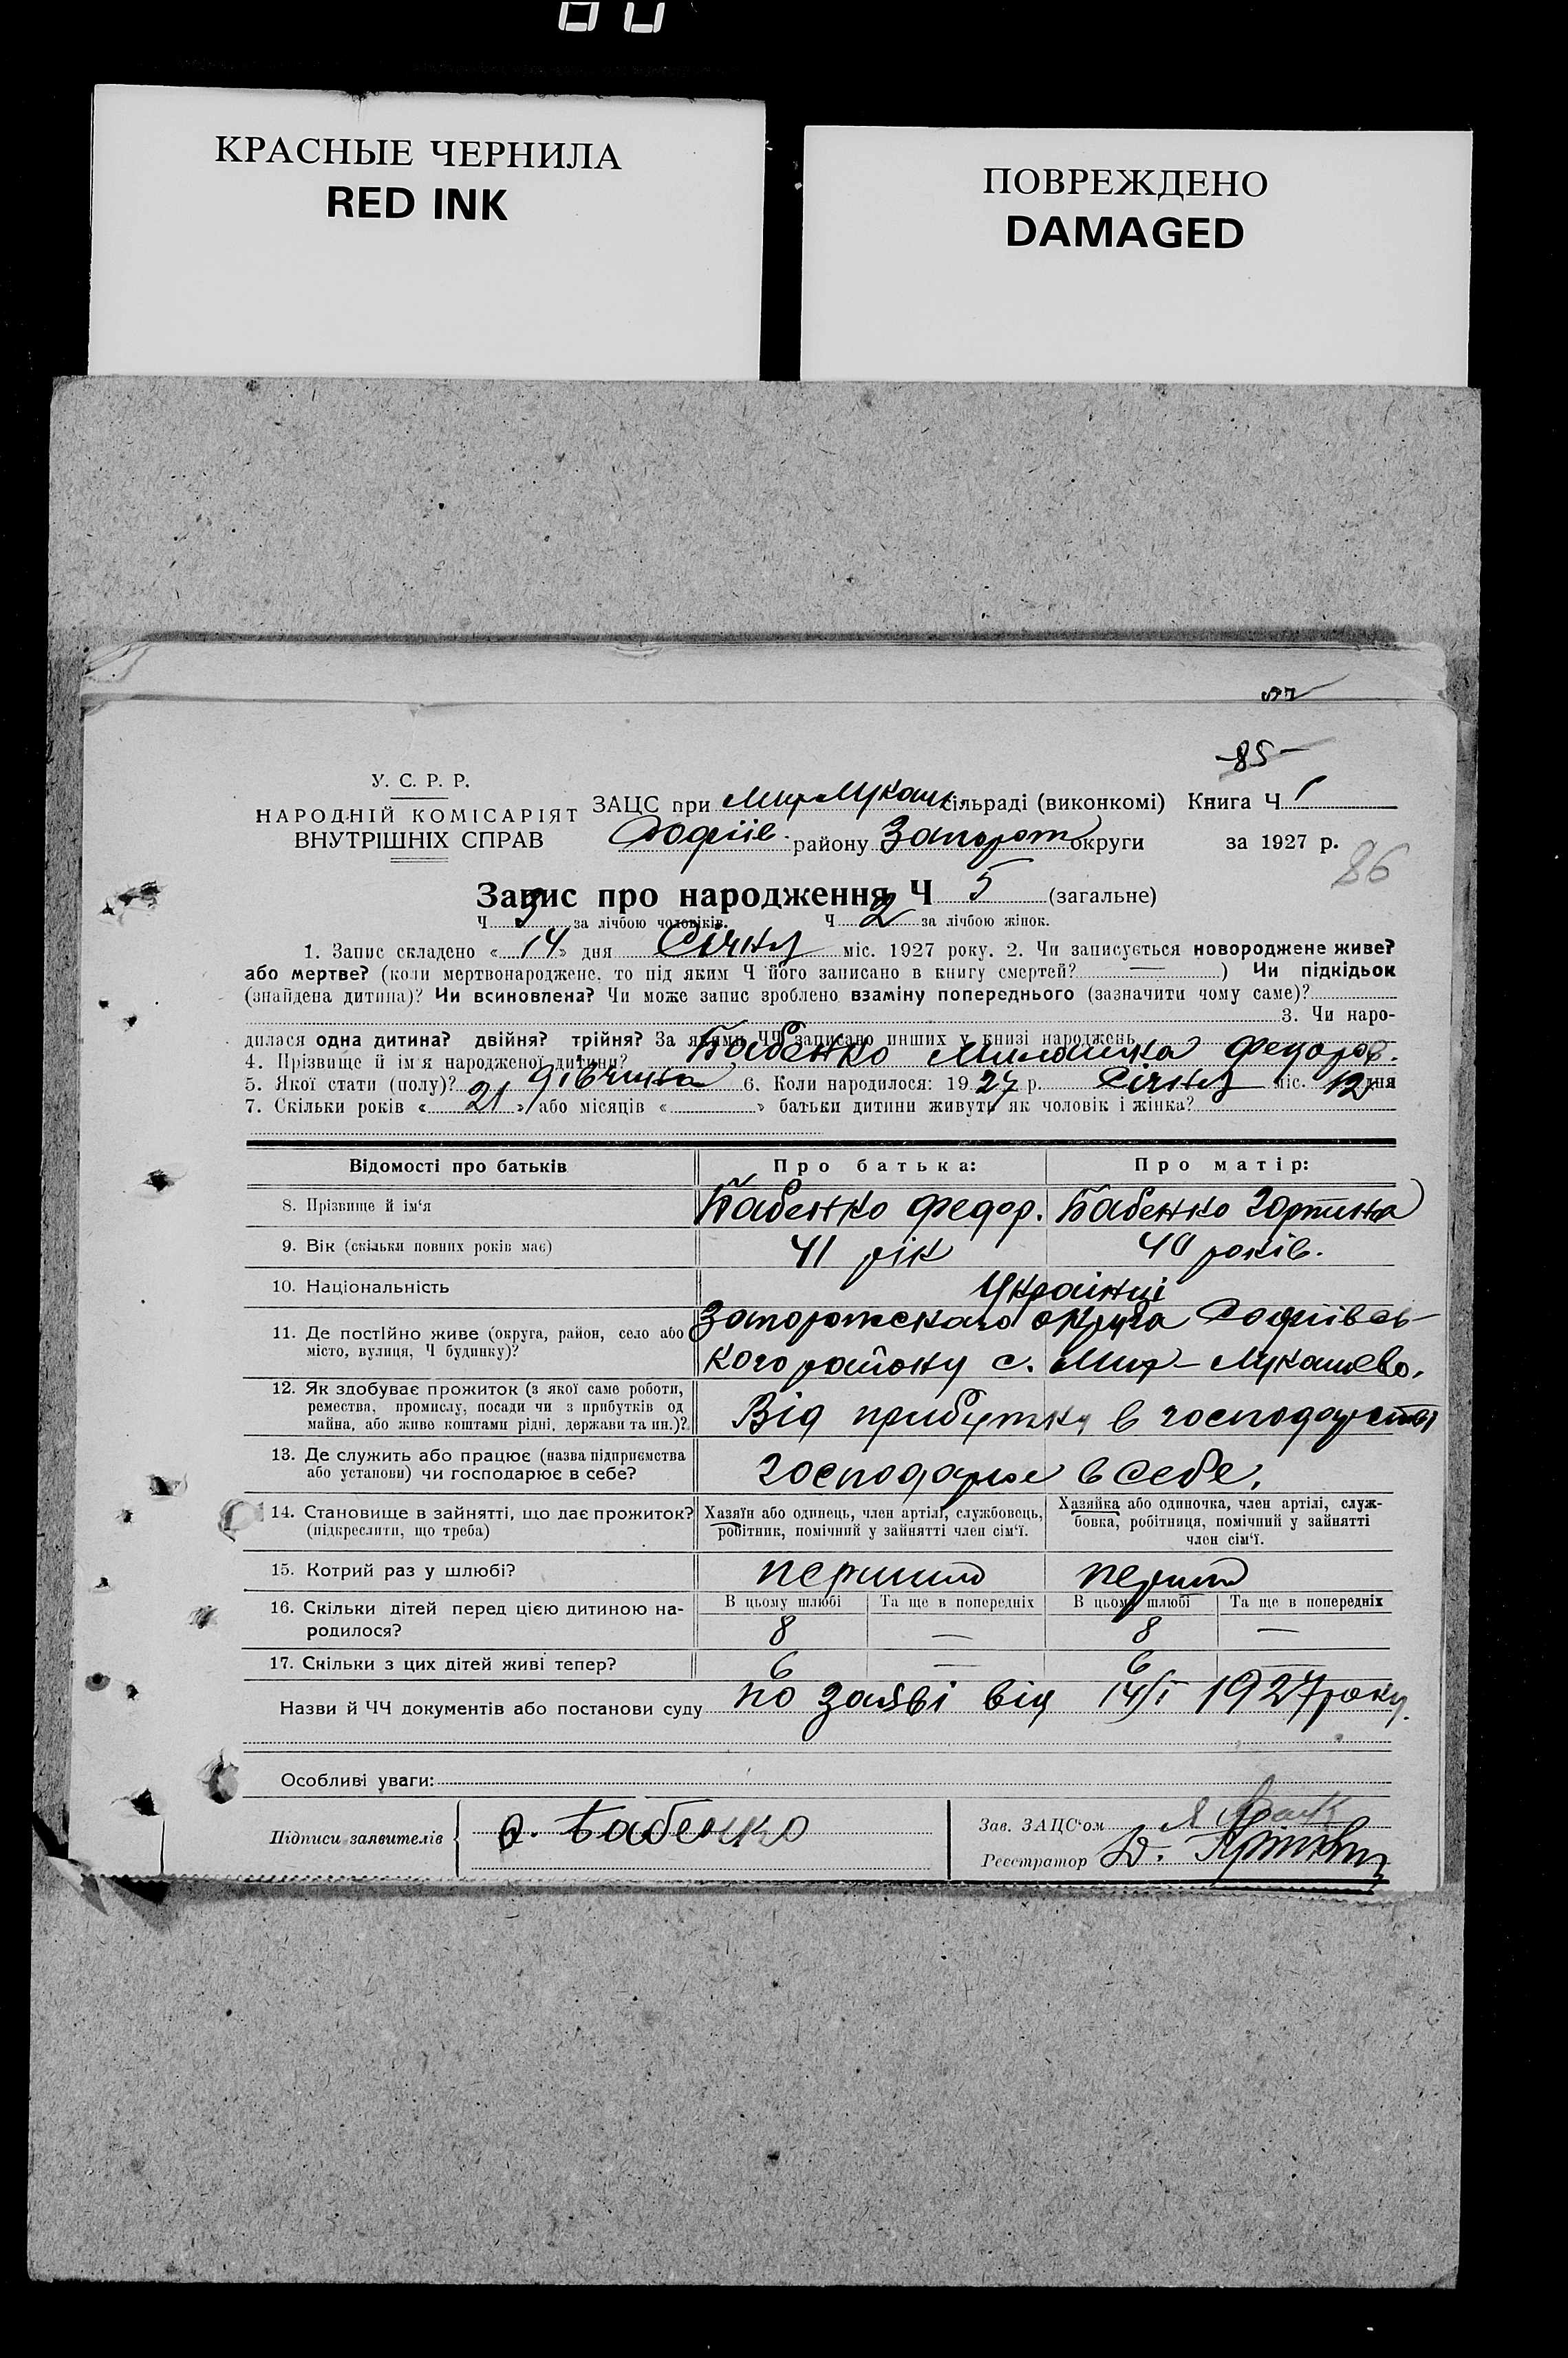 КРАСНЫЕ ЧЕРНИЛА
RED INK
ПОВРЕЖДЕНО
DAMAGED
85
У. С. Р. Р.
НАРОДНІЙ КОМІСАРІЯТ
ВНУТРІШНІХ СПРАВ
ЗАЦС при Мир-Лукаш. сільраді (виконкомі) Книга Ч 1
Софіїв. району Запорож округи за 1927 р.
86
Запис про народження Ч 5 (загальне)
Ч 3 за лічбою чоловіків. Ч 2 за лічбою жінок.
1. Запис складено « 14 » дня Січня міс. 1927 року. 2. Чи записується новороджене живе?
або мертве? (коли мертвонароджене, то під яким Ч його записано в книгу смертей? — ) Чи підкідьок
(знайдена дитина)? Чи всиновлена? Чи може запис зроблено взаміну попереднього (зазначити чому саме)?
3. Чи наро-
дилася одна дитина? двійня? трійня? За якими ЧЧ записано инших у книзі народжень
4. Прізвище й ім'я народженої дитини? Бабенко Федоров.
5. Якої стати (полу)? дівчинка 6. Коли народилося: 1927 р. Січня міс. 12 дня
7. Скільки років « 21 » або місяців « » батьки дитини живуть як чоловік і жінка?
Відомості про батьків
Про батька:
Про матір:
8. Прізвище й ім'я
Бабенко Федор.
Бабенко Горпина
9. Вік (скільки повних років має)
41 рік
40 років.
10. Національність
Українці
11. Де постійно живе (округа, район, село або
місто, вулиця, Ч будинку)?
Запорожскаго округа Софіївсь-
кого району с. Мир-Лукашево.
12. Як здобуває прожиток (з якої саме роботи,
ремества, промислу, посади чи з прибутків од
майна, або живе коштами рідні, держави та ин.)?
Від прибутку в господарстві
13. Де служить або працює (назва підприємства
або установи) чи господарює в себе?
господарює в себе.
14. Становище в зайнятті, що дає прожиток?
(підкреслити, що треба)
Хазяїн або одинець, член артілі, службовець,
робітник, помічний у зайнятті член сім'ї.
Хазяйка або одиночка, член артілі, служ-
бовка, робітниця, помічний у зайнятті
член сім'ї.
15. Котрий раз у шлюбі?
перший
перший
16. Скільки дітей перед цією дитиною на-
родилося?
В цьому шлюбі Та ще в попередніх В цьому шлюбі Та ще в попередніх
8 — 8 —
17. Скільки з цих дітей живі тепер?
6 — 6 —
Назви й ЧЧ документів або постанови суду по заяві від 14/I 1927 року.
Особливі уваги:
Підписи заявителів
Ф. Бабенко
Зав. ЗАЦС'ом
Реєстратор